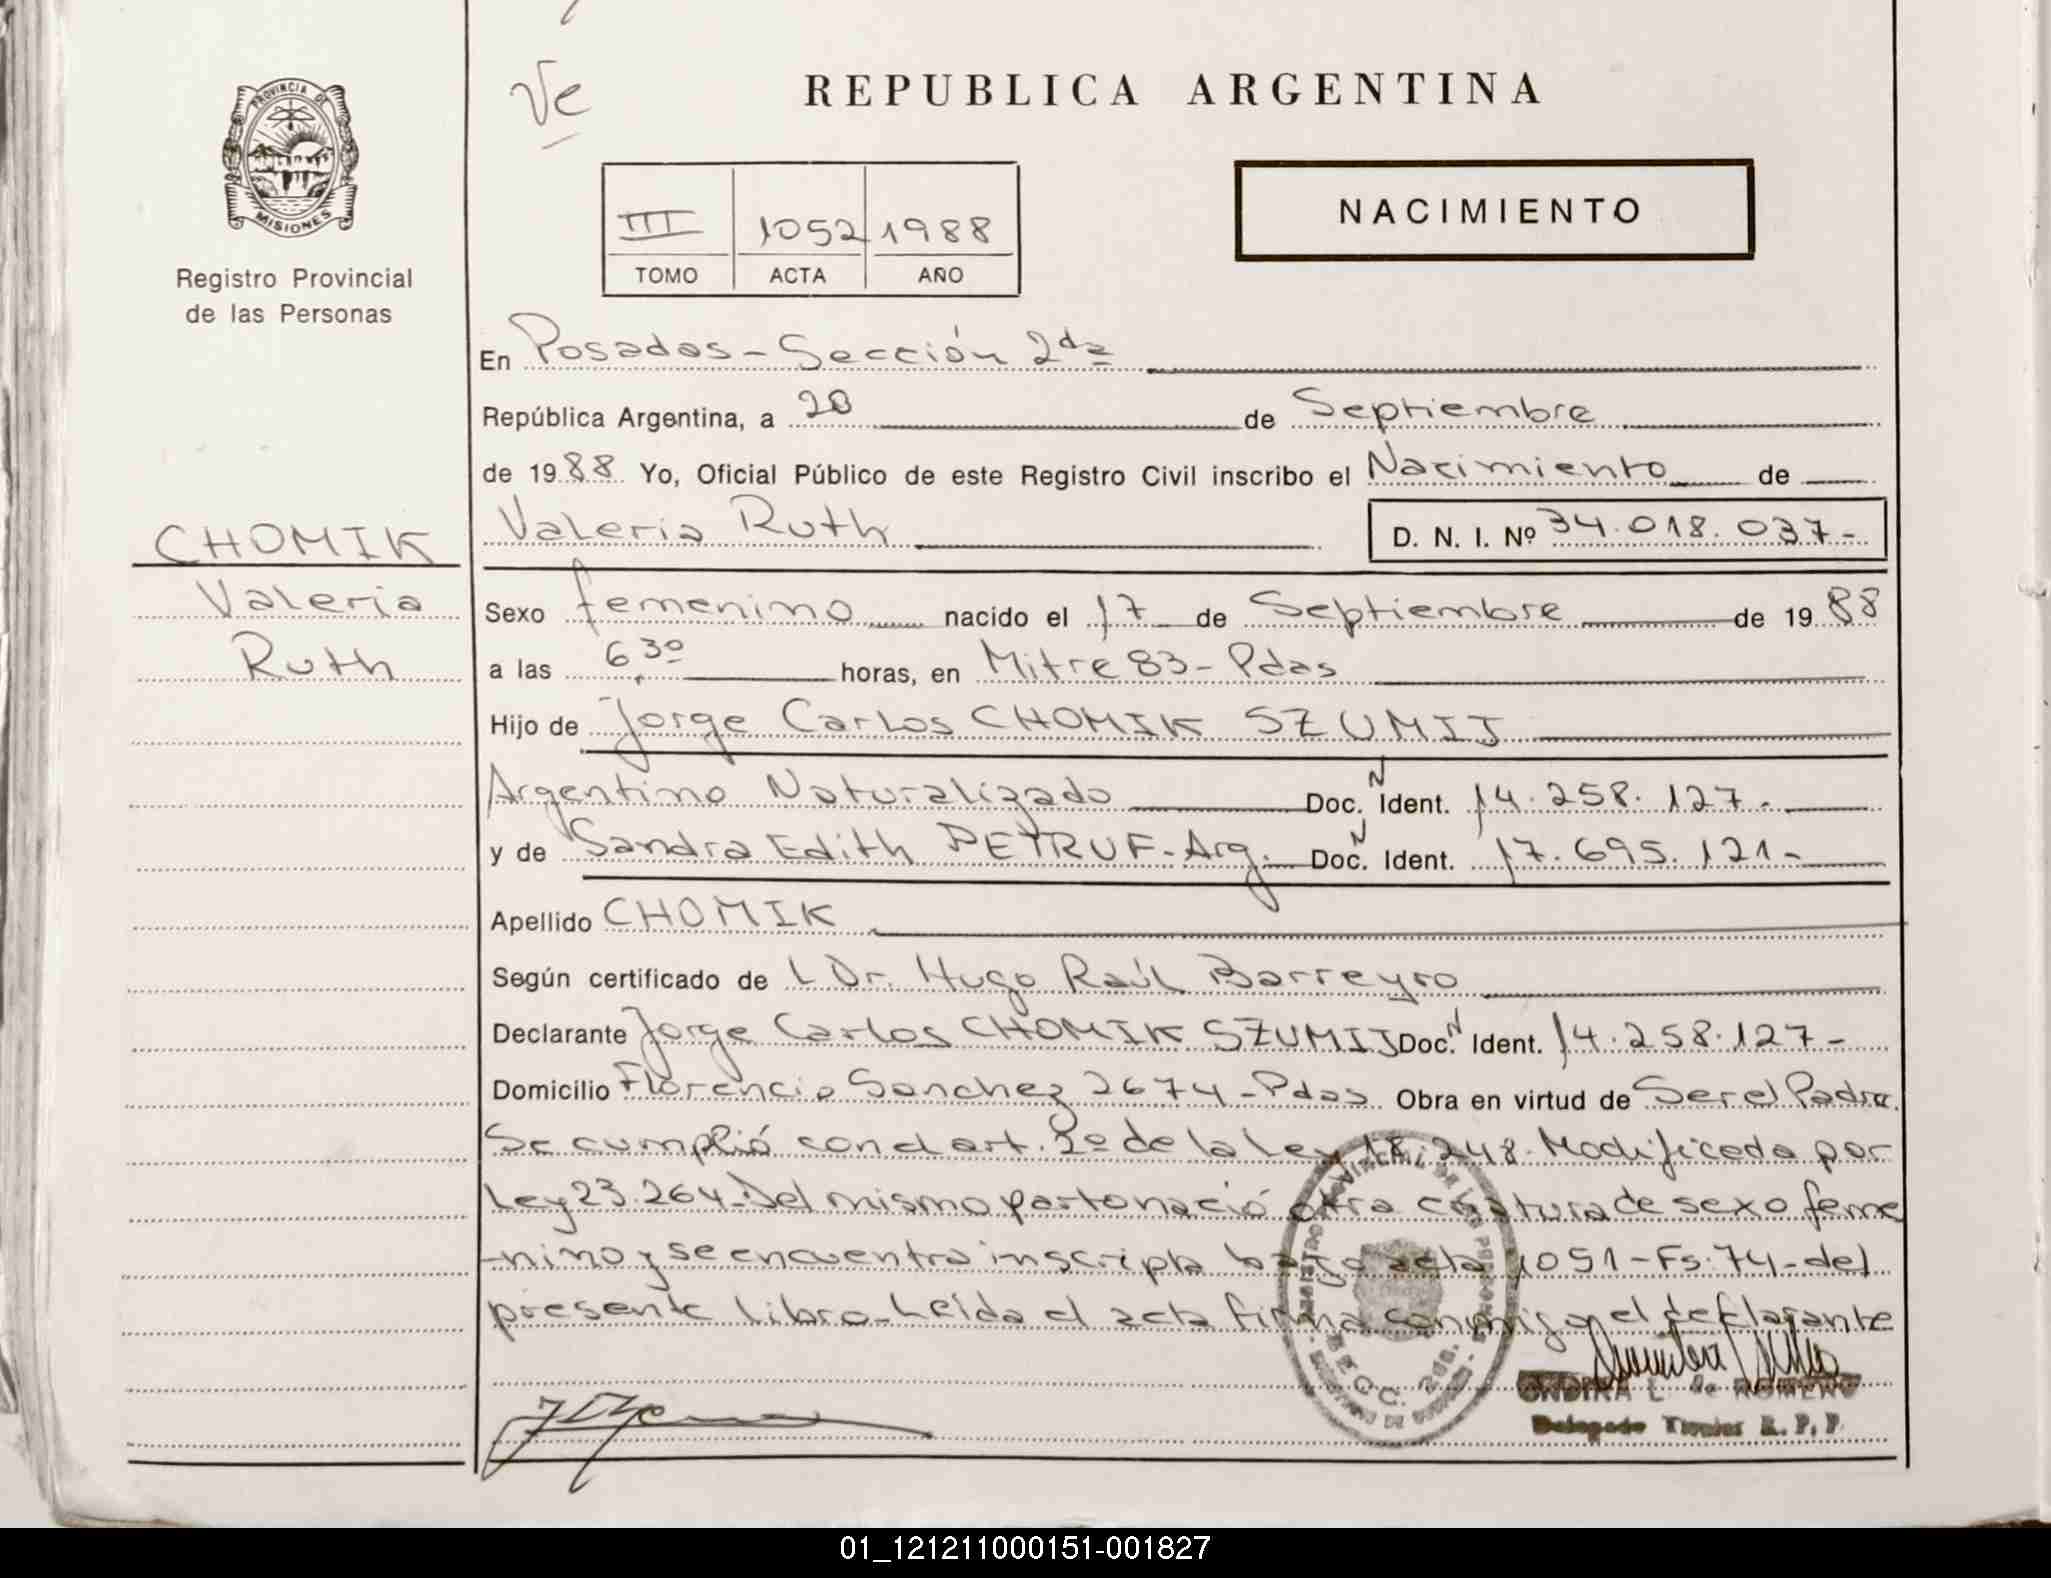 Ve
REPUBLICA ARGENTINA
PROVINCIA DE
MISIONES
NACIMIENTO
III 1052 1988
TOMO ACTA AÑO
Registro Provincial
de las Personas
En Posadas - Sección 2da
República Argentina, a 20 de Septiembre
de 1988 Yo, Oficial Público de este Registro Civil inscribo el Nacimiento de
CHOMIK
Valeria
Ruth
Valeria Ruth D. N. I. Nº 34.018.037-
Sexo femenino nacido el 17 de Septiembre de 1988
a las 6 30 horas, en Mitre 83 - Pdas
Hijo de Jorge Carlos CHOMIK SZUMIJ
Argentino Naturalizado Doc. N Ident. 14.258.127-
y de Sandra Edith PETRUF - Arg. Doc. N Ident. 17.695.121-
Apellido CHOMIK
Según certificado de l Dr. Hugo Raúl Barreyro
Declarante Jorge Carlos CHOMIK SZUMIJ Doc. N Ident. 14.258.127-
Domicilio Florencio Sanchez 2674 - Pdas Obra en virtud de Ser el Padre.
Se cumplió con el art. 2º de la Ley 18.248. Modificada por
Ley 23.264. Del mismo parto nació otra criatura de sexo feme
-nino y se encuentra inscripta bajo acta 1051 - Fs. 74 - del
presente libro - Leída el acta firma conmigo el declarante
SECC. 2da.
L de ROMERO
Delegado Titular R. P. P.
01_121211000151-001827